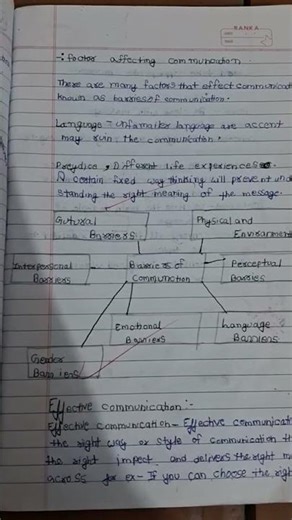 RANKA
-: factor affecting communication
There are many factors that effect communicat
known as barriers of communication.
Language = unfamailar language are accent
may run the communication.
Prejudice, Different life experiences
A certain fixed way thinking will prevent und
standing the right meaning of the message.
Cutural
Barriers
Physical and
Environment
Interpersonal
Barriers
Barriers of
Communction
Perceptual
Barries
Emotional
Barriers
Language
Barriens
Gender
Barriens
Effective communication :-
Effective communication - Effective communicat
the right way or style of communication th
the right impact and delivers the right m
across for ex- If you can choose the righ